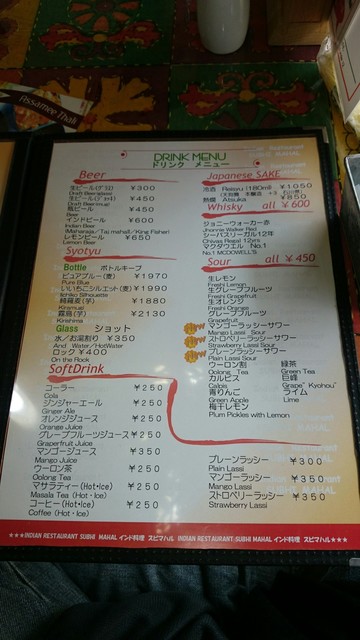 Assamese Thali
DRINK MENU
ドリンク メニュー
Beer
生ビール(グラス) ¥300
Draft Beer(glass)
生ビール ¥450
Draft Beer(mug)
瓶ビール ¥450
Beer
インドビール ¥600
Indian Beer
(Maharaja/Taj mahal/King Fisher)
レモンビール ¥650
Lemon Beer
Syotyu
Bottle ボトルキープ
ピュアブルー(麦) ¥1970
Pure Blue
いいちこシルエット(麦) ¥1990
Iichiko Silhouette
綺羅麦(芋) ¥1880
霧島(芋) ¥2130
Kirishima
Glass ショット
水/お湯割り ¥350
And Water/HotWater
ロック ¥400
On the Rock
SoftDrink
コーラー ¥250
Cola
ジンジャーエール ¥250
Ginger Ale
オレンジジュース ¥250
Orange Juice
グレープフルーツジュース ¥250
Grapefruit Juice
マンゴージュース ¥350
Mango Juice
ウーロン茶 ¥250
Oolong Tea
マサラティー(Hot・ice) ¥250
Masala Tea (Hot・Ice)
コーヒー(Hot・ice) ¥250
Coffee (Hot・Ice)
Japanese SAKE
冷酒 Reisyu (180ml) ¥1050
熱燗 Atsuka ¥450
Whisky all ¥600
ジョニーウォーカー赤
Jhonnie Walker Red
シーバスリーガル12年
Chivas Regal 12yrs
マクダウエル No.1
No.1 MCDOWELL'S
Sour all ¥450
生レモン
Fresh Lemon
生グレープフルーツ
Fresh Grapefruit
生オレンジ
Fresh Orange
グレープフルーツ
Grapefruit
マンゴーラッシーサワー
Mango Lassi Sour
ストロベリーラッシーサワー
Strawberry Lassi Sour
プレーンラッシーサワー
Plain Lassi Sour
ウーロン割 緑茶
Oolong Tea Green Tea
カルピス 巨峰
Calpis Grape" Kyohou"
青りんご ライム
Green Apple Lime
梅干レモン
Plum Pickles with Lemon
プレーンラッシー ¥300
Plain Lassi
マンゴーラッシー ¥350
Mango Lassi
ストロベリーラッシー ¥350
Strawberry Lassi
★★★INDIAN RESTAURANT SUBHI MAHAL インド料理 スビマハル INDIAN RESTAURANT SUBHI MAHAL インド料理 スビマハル★★★